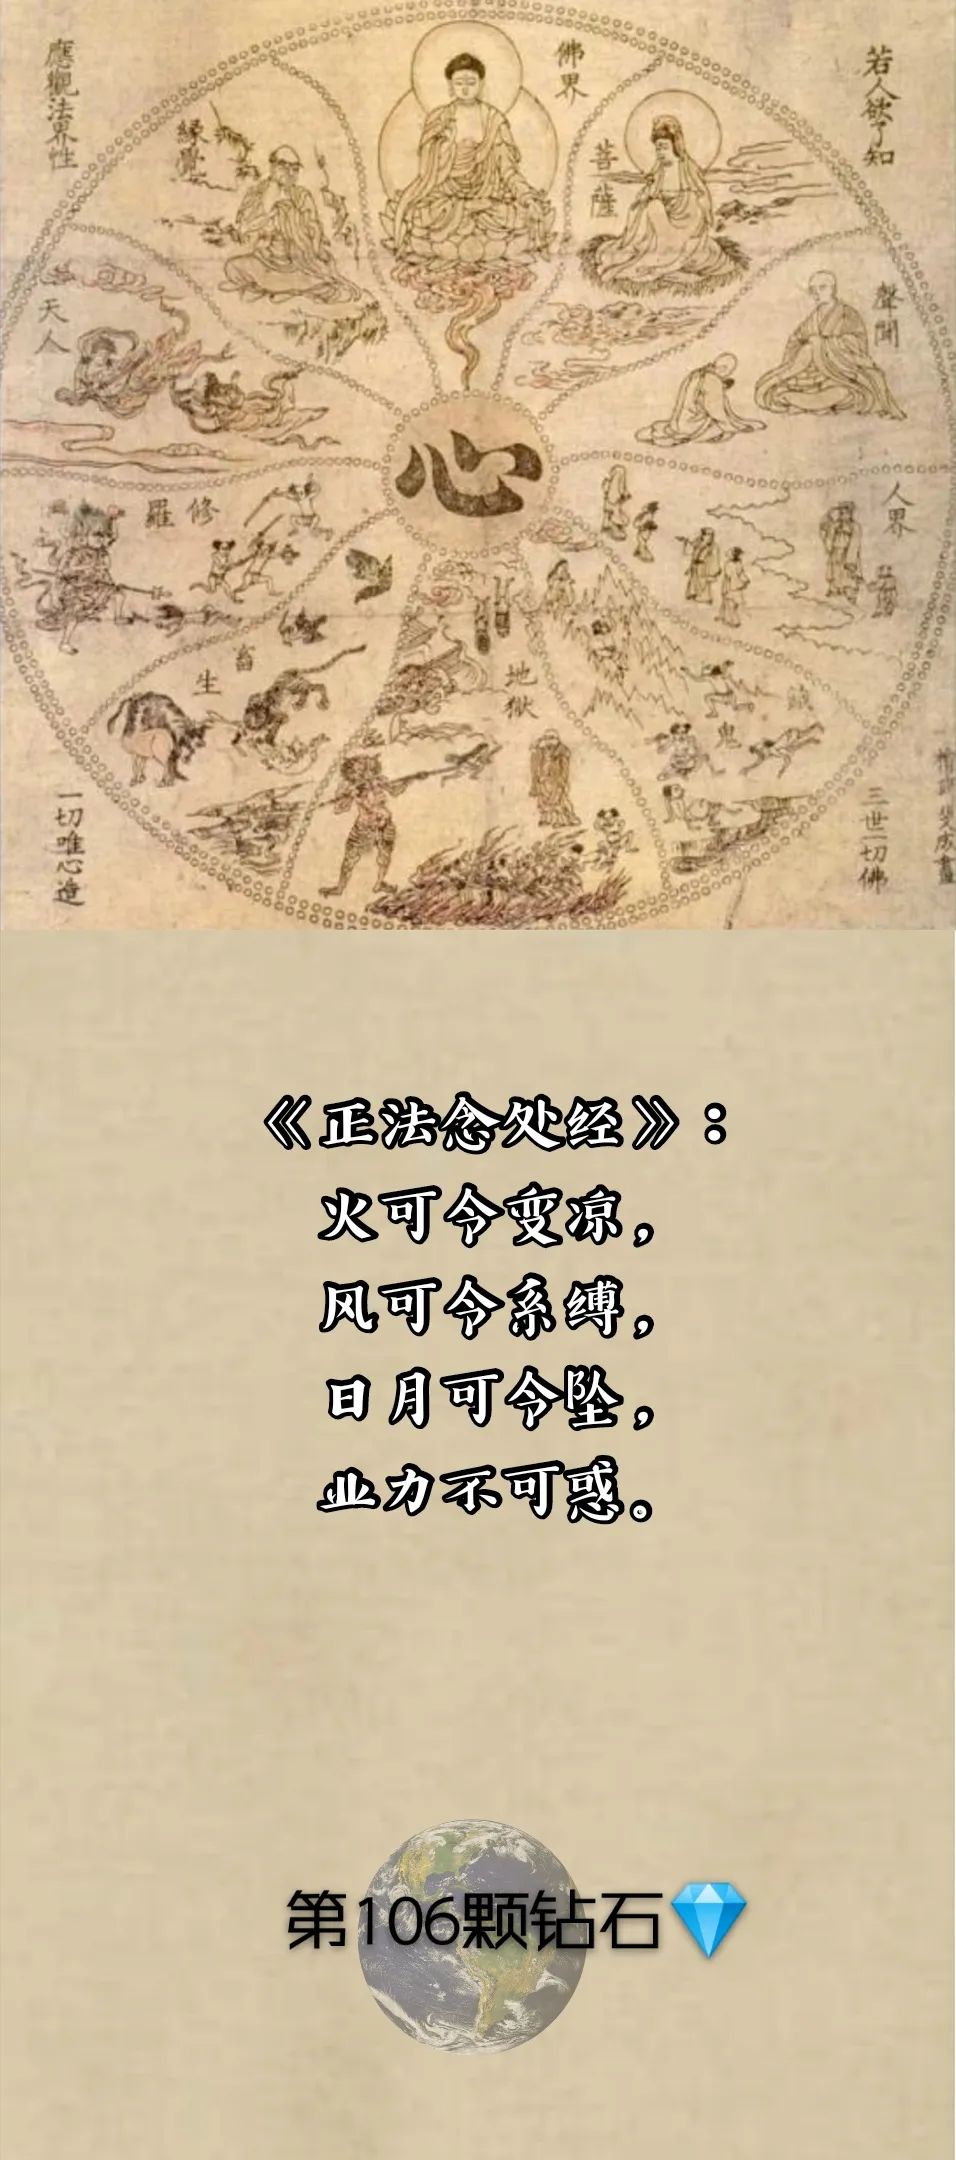 若人欲了知
三世一切佛
應觀法界性
一切唯心造
佛界
菩薩
緣覺
聲聞
天人
人界
修羅
畜生
地獄
餓鬼
心
《正法念处经》：
火可令变凉，
风可令系缚，
日月可令坠，
业力不可惑。
第106颗钻石